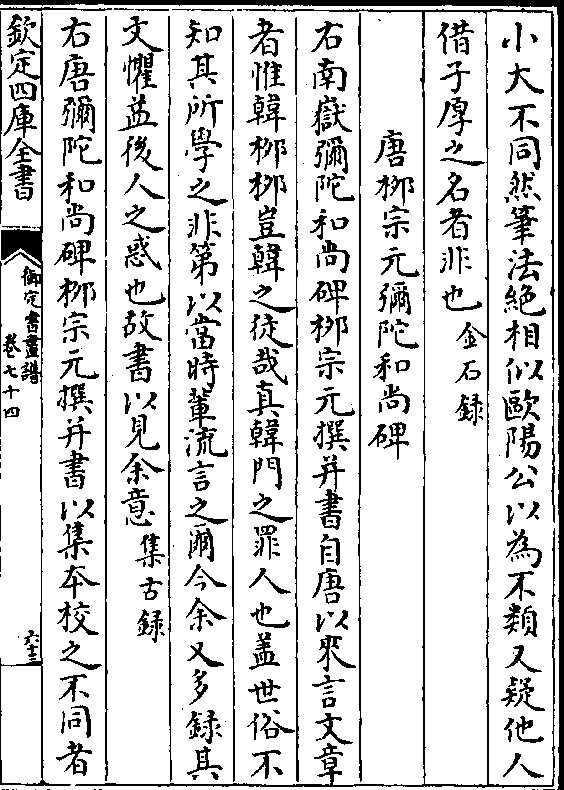 小大不同然筆法絶相似歐陽公以為不類又疑他人
借子厚之名者非也金石録
唐栁宗元彌陀和尚碑
右南嶽彌陀和尚碑栁宗元撰并書自唐以來言文章
者惟韓栁栁豈韓之徒哉真韓門之罪人也盖世俗不
知其所學之非第以當時輩流言之爾今余又多録其
文懼益後人之惑也故書以見余意集古録
右唐彌陀和尚碑栁宗元撰并書以集本校之不同者
欽定四庫全書
御定書畫譜
卷七十四
六十三